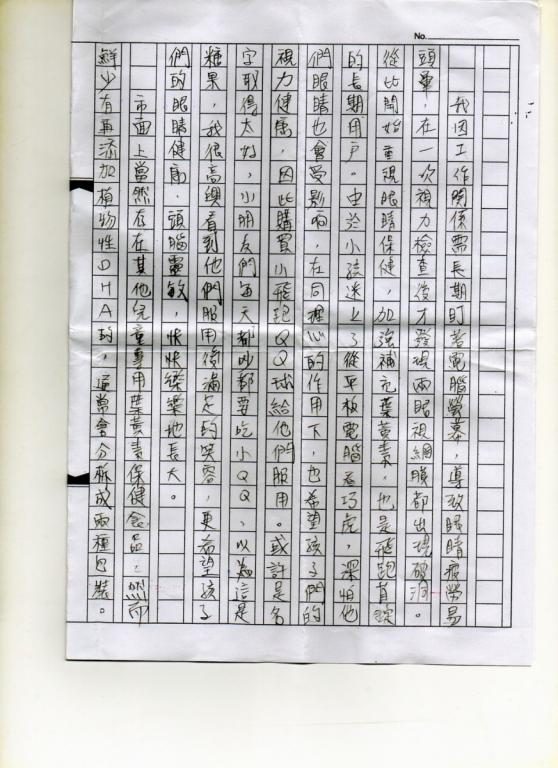 No.
我因工作關係需長期盯著電腦螢幕,導致眼睛疲勞易
頭暈,在一次視力檢查後才發現兩眼視網膜都出現破洞。
從此開始重視眼睛保健,加強補充葉黃素,也是飛跑首錠
的長期用戶。由於小孩迷上了從平板電腦看巧虎,深怕他
們眼睛也會受影响,在同理心的作用下,也希望孩子們的
視力健康,因此購買小飛跑QQ球給他們服用。或許是名
字取得太好,小朋友們每天都吵鄹要吃小QQ,以為這是
糖果,我很高興看到他們服用後滿足的笑容,更希望孩子
們的眼睛健康、頭腦靈敏,快快樂樂地長大。
市面上當然存在其他兒童專用葉黃素保健食品,然而
鮮少有再添加植物性DHA的,通常會分拆成兩種包裝。